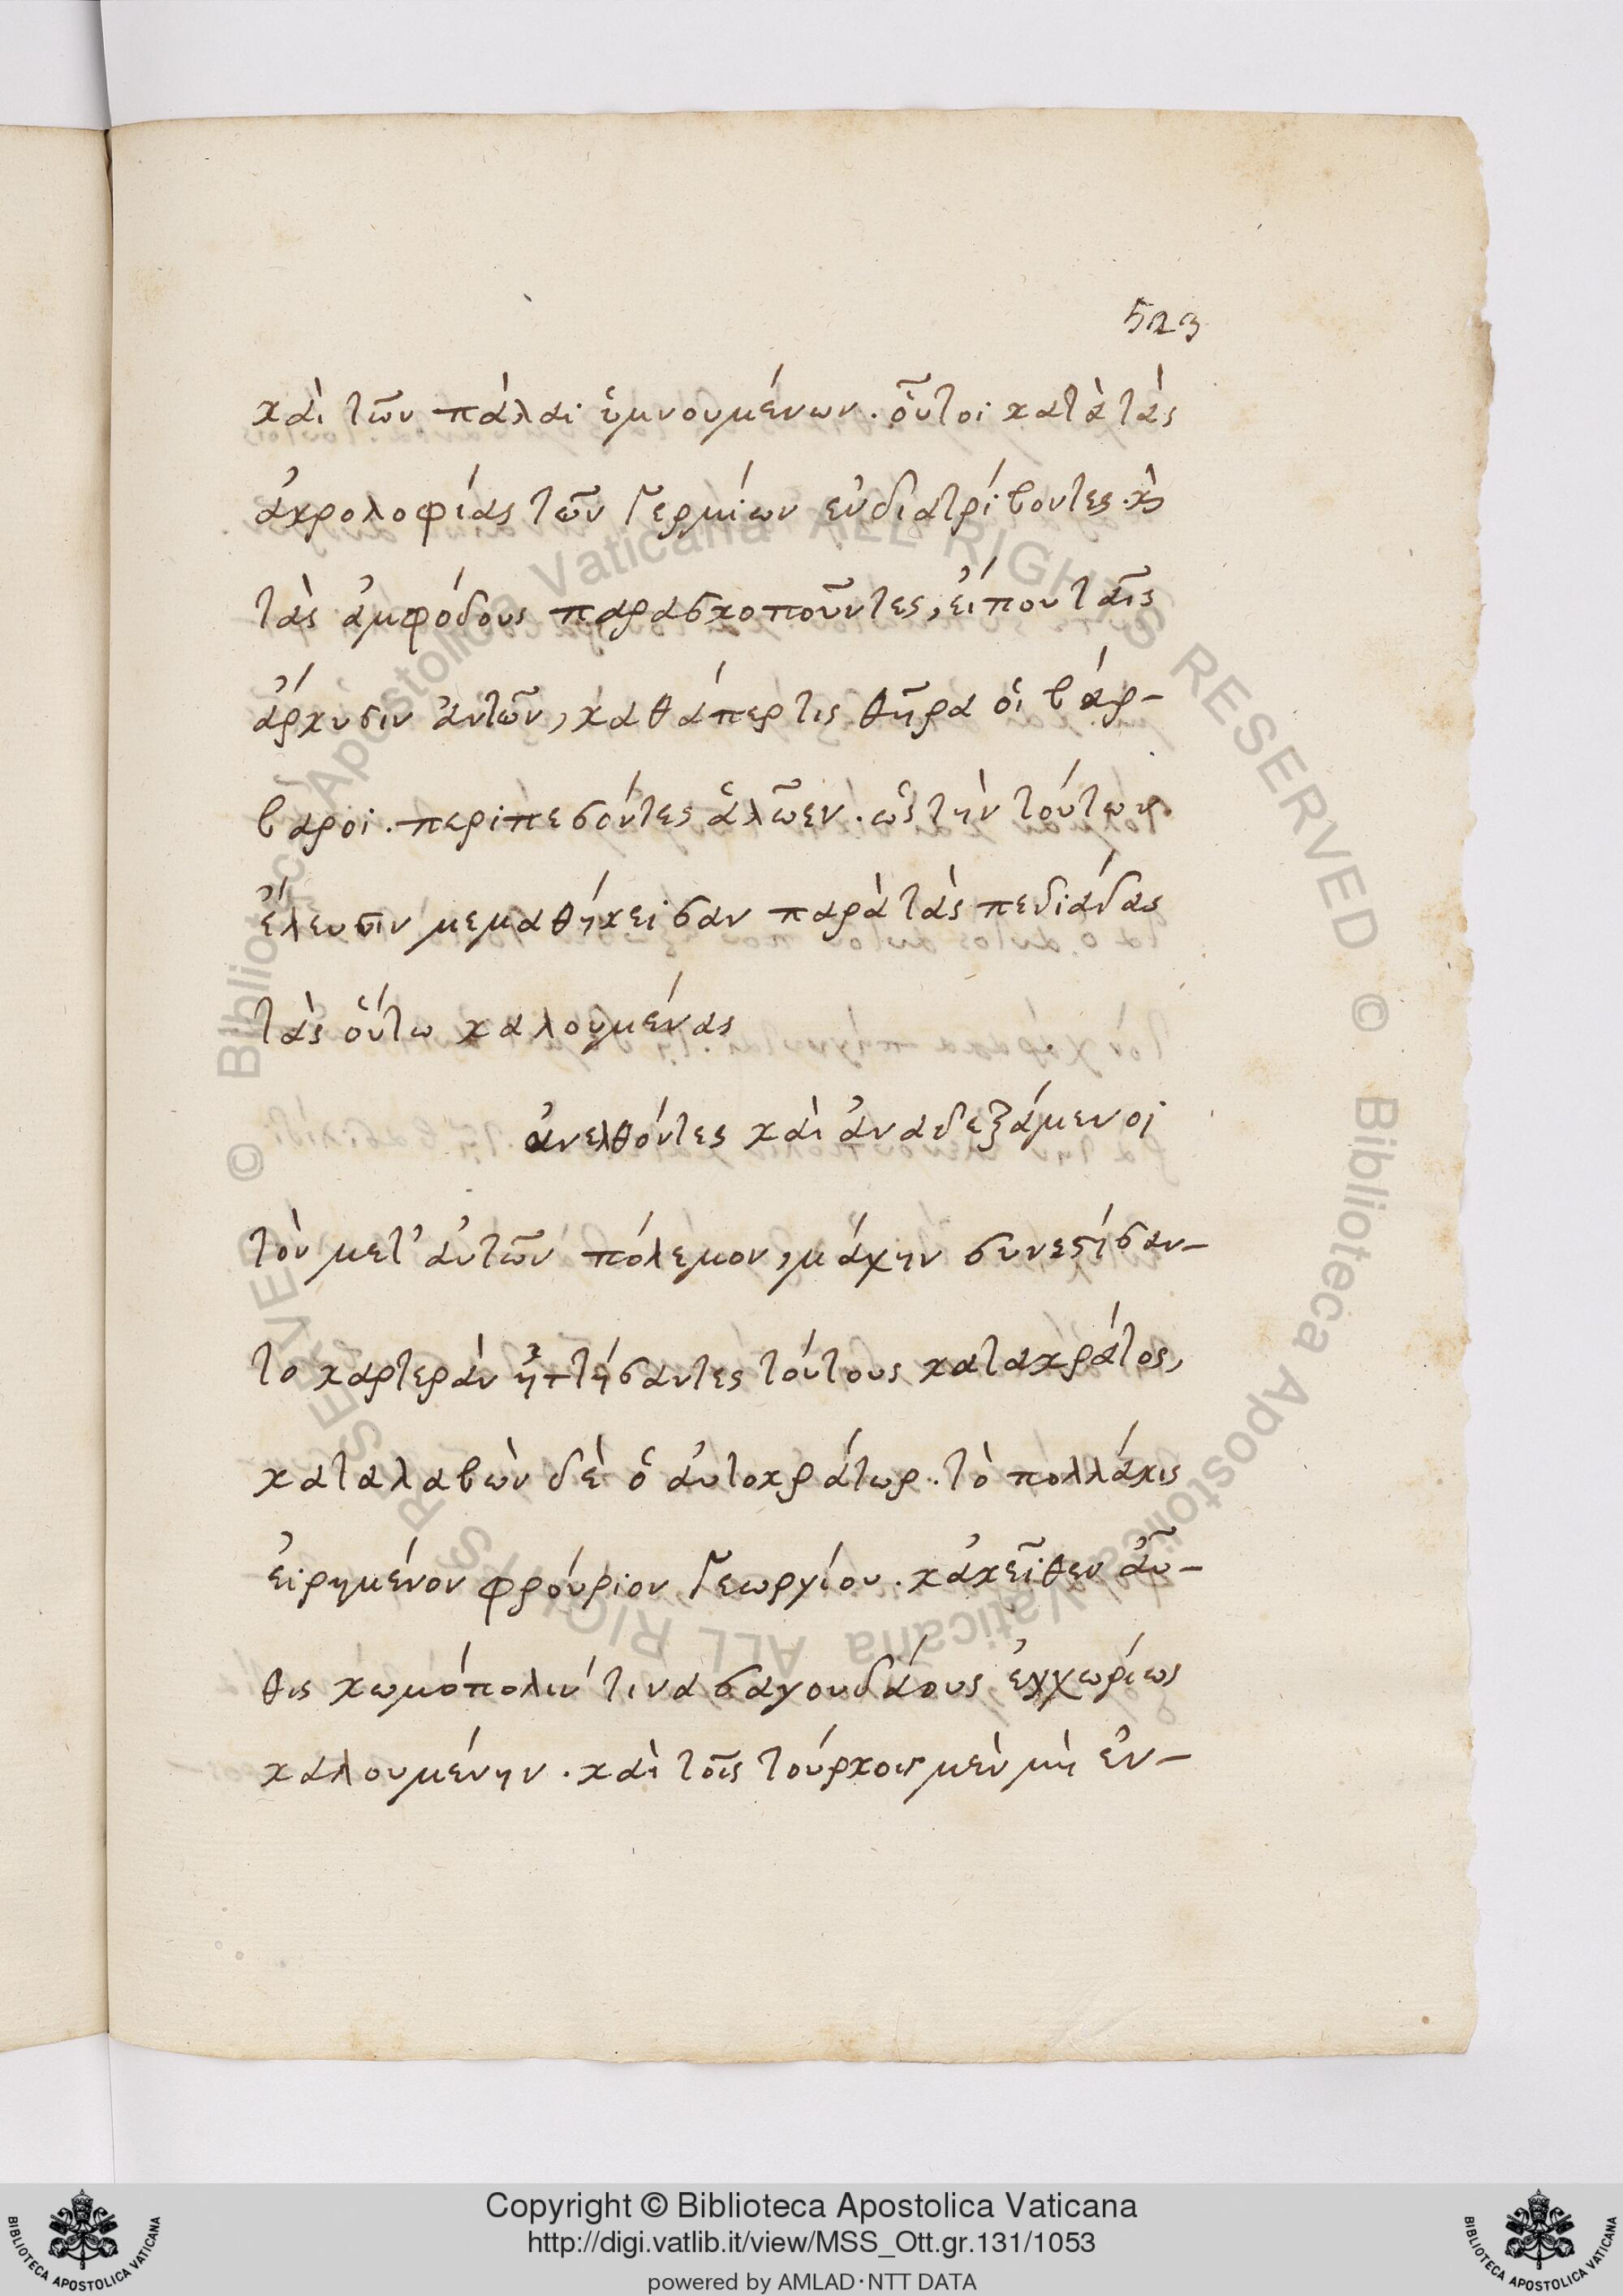 523
καὶ τῶν πάλαι ὑμνουμένων. οὗτοι κατὰ τὰς
ἀκρολοφίας τῶν Γερμίων ἐνδιατρίβοντες. κ̀
τὰς ἀμφόδους παρασκοποῦντες, εἴπου ταῖς
ἄρκυσιν ἀυτῶν, καθάπερ τις θῆρα οἱ βάρ-
βαροι. περιπεσόντες ἁλῶεν. ὡς τὴν τούτων
ἔλευσιν μεμαθήκεισαν παρὰ τὰς πεδιάδας
τὰς οὕτω καλουμένας
ἀνελθόντες καὶ ἀναδεξάμενοι
τὸν μετ' ἀυτῶν πόλεμον, μάχην συνεστήσαν-
το καρτερὰν ἡττήσαντες τούτους κατακράτος,
καταλαβὼν δὲ ὁ ἀυτοκράτωρ. τὸ πολλάκις
εἰρημένον φρούριον Γεωργίου. κἀκεῖθεν ἆυ-
θις κωμόπολιν τινα σαγουδάους ἐγχωρίως
καλουμένην. καὶ τοῖς τούρκοις μὲν μὴ ἐν-
Copyright © Biblioteca Apostolica Vaticana
http://digi.vatlib.it/view/MSS_Ott.gr.131/1053
powered by AMLAD·NTT DATA
BIBLIOTECA APOSTOLICA VATICANA
BIBLIOTECA APOSTOLICA VATICANA
© Biblioteca Apostolica Vaticana ALL RIGHTS RESERVED © Biblioteca Apostolica Vaticana ALL RIGHTS RESERVED